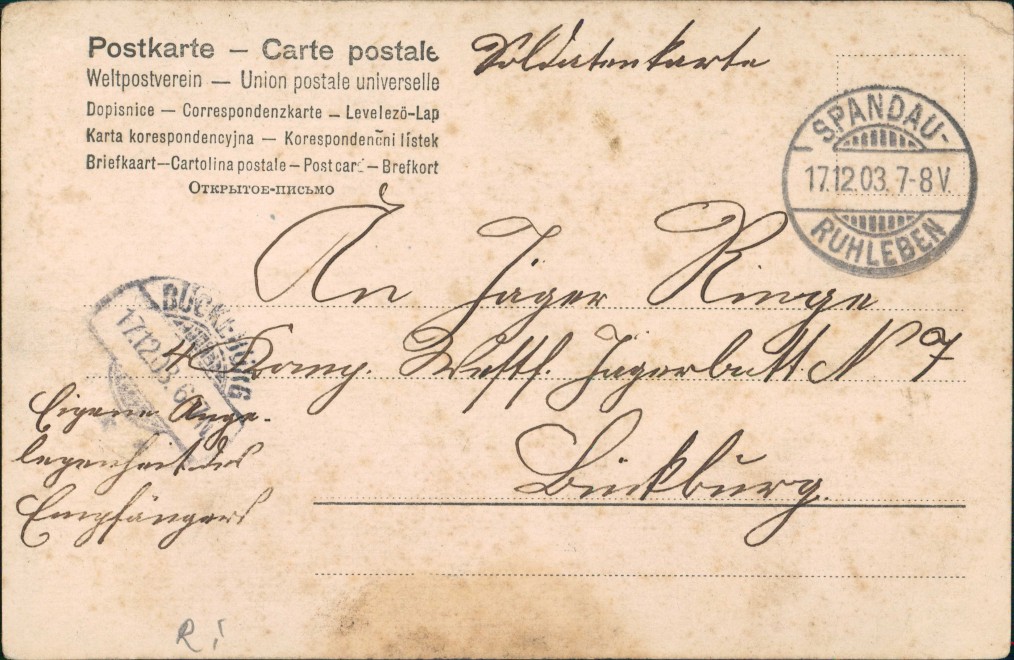 Postkarte – Carte postale
Weltpostverein — Union postale universelle
Dopisnice — Correspondenzkarte — Levelezö-Lap
Karta korespondencyjna — Korespondenčni lístek
Briefkaart—Cartolina postale—Post card—Brefkort
Открытое-письмо
Soldatenkarte
SPANDAU-
17.12.03. 7-8 V.
RUHLEBEN
An Jäger Ringe
4 Komp. Westf. Jägerbatt N 7
Bückburg.
BÜCKEBURG
17.12.03. 6-7 N
Eigene Ange-
legenheit des
Empfängers
R!